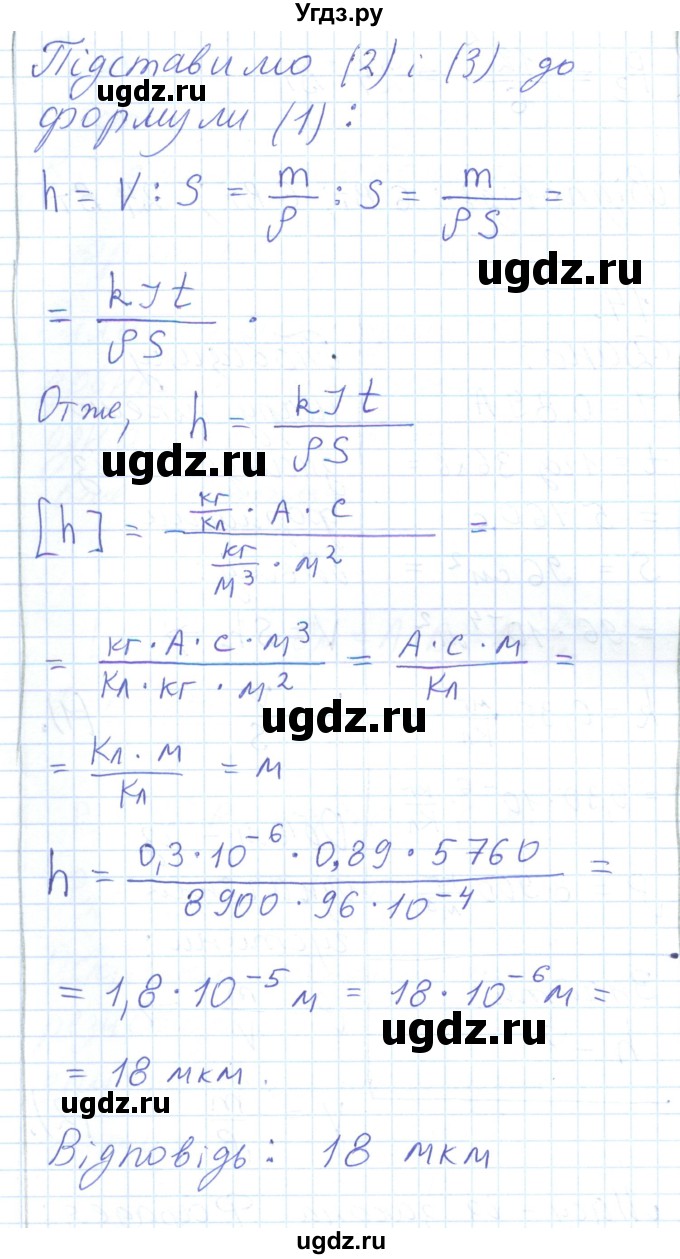 Угдз.ру
Підставимо (2) і (3) до
ugdz.ru
формули (1):
h = V : S = m/ρ : S = m/ρS =
ugdz.ru
= kIt/ρS .
Отже, h = kIt/ρS
ugdz.ru
[h] = (кг/Кл · А · с)/(кг/м³ · м²) =
= (кг · А · с · м³)/(Кл · кг · м²) = (А · с · м)/Кл =
ugdz.ru
= (Кл · м)/Кл = м
h = (0,3 · 10⁻⁶ · 0,89 · 5760)/(8900 · 96 · 10⁻⁴) =
= 1,8 · 10⁻⁵ м = 18 · 10⁻⁶ м =
ugdz.ru
= 18 мкм.
ugdz.ru
Відповідь: 18 мкм
ugdz.ru